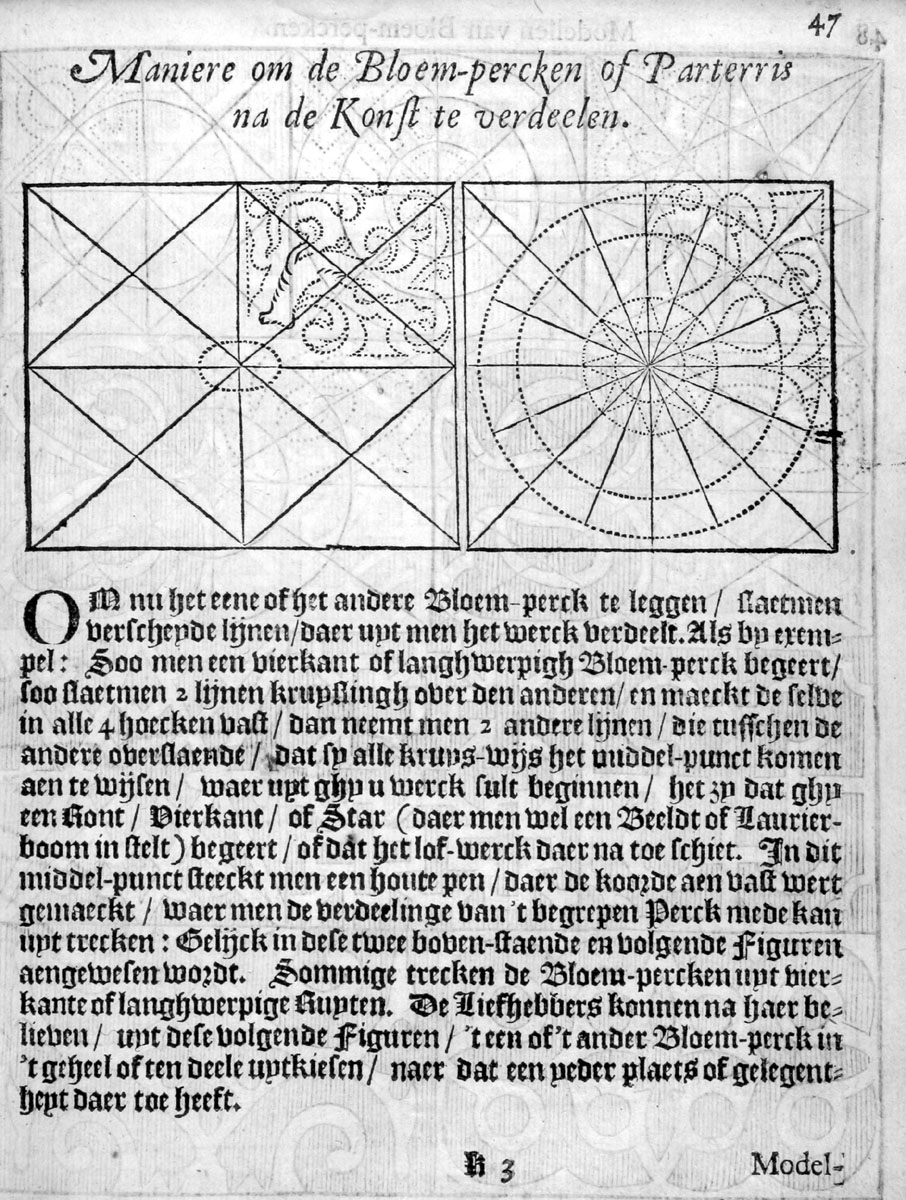 47
Maniere om de Bloem-percken of Parterris
na de Konst te verdeelen.
OM nu het eene of het andere Bloem-perck te leggen / slaetmen
verscheyde lijnen / daer uyt men het werck verdeelt. Als by exem-
pel: Soo men een vierkant of langhwerpigh Bloem-perck begeert /
soo slaetmen 2 lijnen kruyslingh over den anderen / en maeckt de selve
in alle 4 hoecken vast / dan neemt men 2 andere lijnen / die tusschen de
andere overslaende / dat sy alle kruys-wijs het middel-punct komen
aen te wijsen / waer uyt ghy u werck sult beginnen / het zy dat ghy
een Ront / Vierkant / of Star (daer men wel een Beeldt of Laurier-
boom in stelt) begeert / of dat het lof-werck daer na toe schiet. In dit
middel-punct steeckt men een houte pen / daer de koorde aen vast wert
gemaeckt / waer men de verdeelinge van 't begrepen Perck mede kan
uyt trecken: Gelijck in dese twee boven-staende en volgende Figuren
aengewesen wordt. Sommige trecken de Bloem-percken uyt vier-
kante of langhwerpige Ruyten. De Liefhebbers konnen na haer be-
lieven / uyt dese volgende Figuren / 't een of 't ander Bloem-perck in
't geheel of ten deele uytkiesen / naer dat een yeder plaets of gelegent-
heyt daer toe heeft.
K 3
Model-